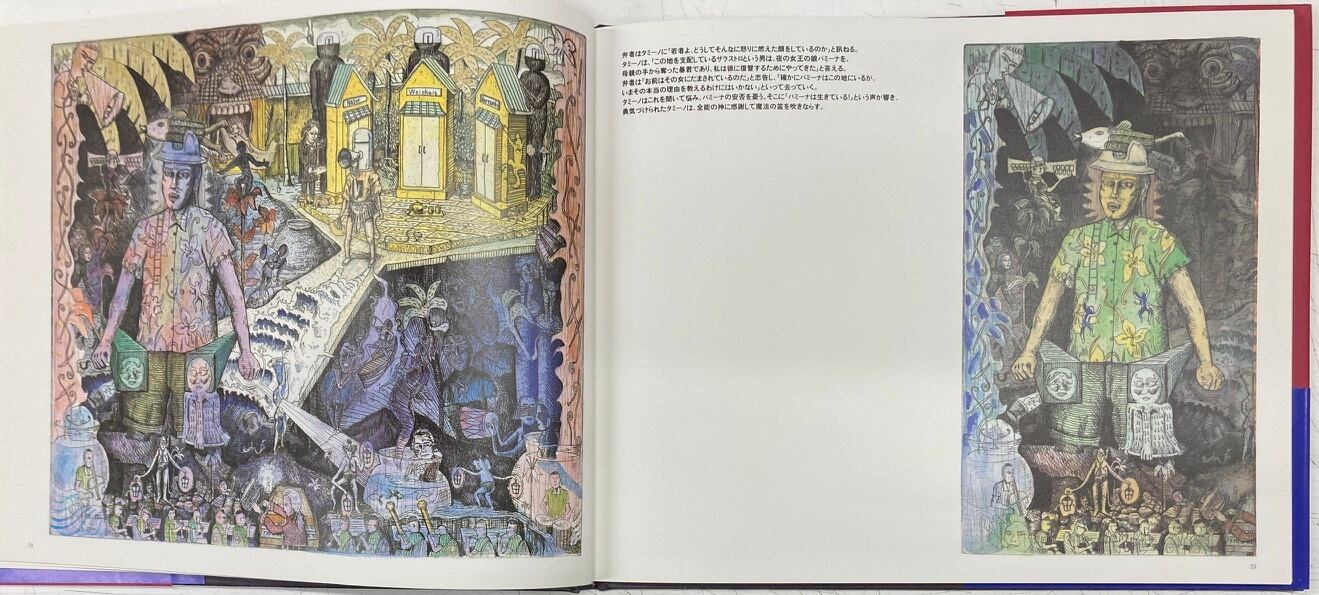 弁者はタミーノに「若者よ、どうしてそんなに怒りに燃えた顔をしているのか」と訊ねる。
タミーノは、「この地を支配しているザラストロという男は、夜の女王の娘パミーナを、
母親の手から奪った暴君であり、私は彼に復讐するためにやってきた」と答える。
弁者は「お前はその女にだまされているのだ」と忠告し、「確かにパミーナはこの地にいるが、
いまその本当の理由を教えるわけにはいかない」といって去っていく。
タミーノはこれを聞いて悩み、パミーナの安否を憂う。そこに「パミーナは生きている!」という声が響き、
勇気づけられたタミーノは、全能の神に感謝して魔法の笛を吹きならす。
Weisheit
Natur
25